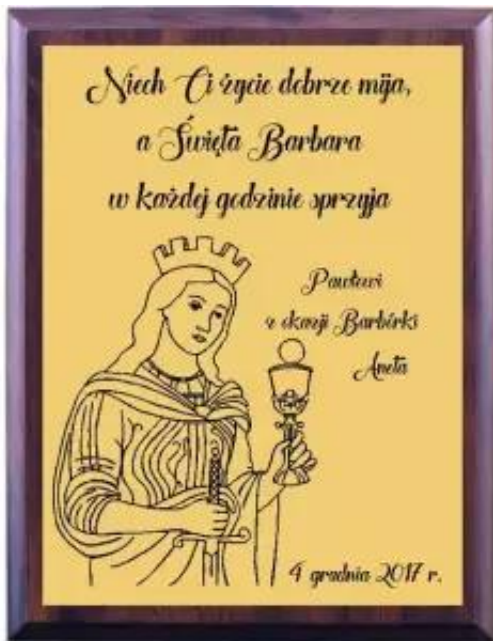 Niech Ci życie dobrze mija,
a Święta Barbara
w każdej godzinie sprzyja
Pawłowi
z okazji Barbórki
Aneta
4 grudnia 2017 r.